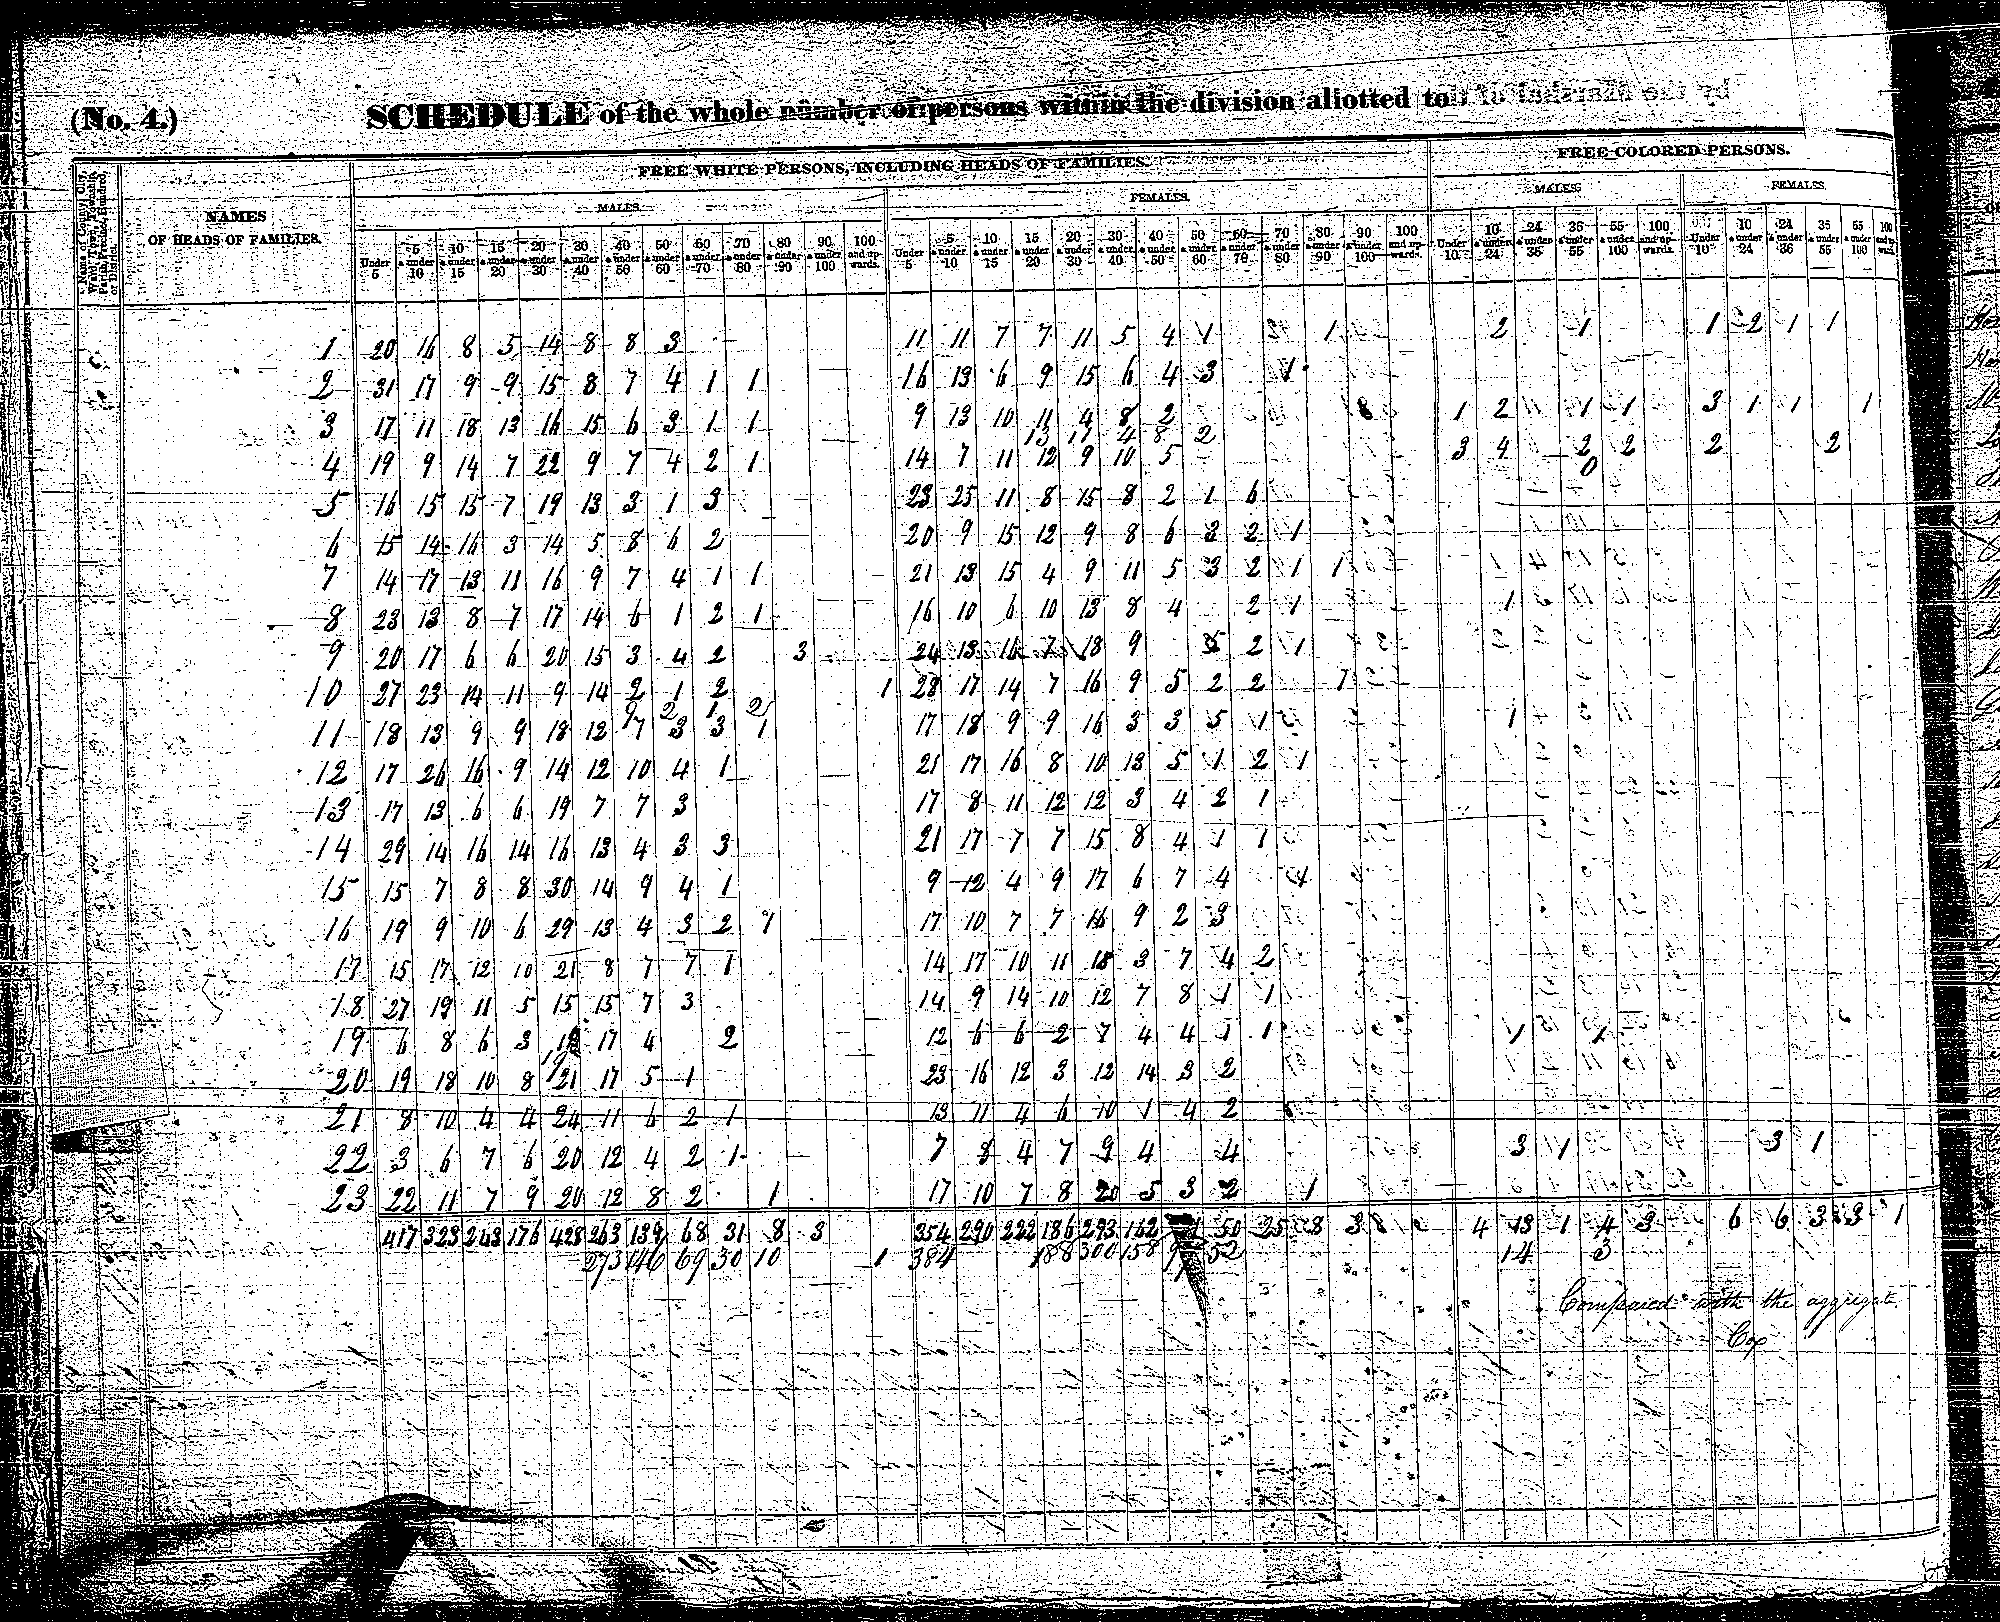 (No. 4.) SCHEDULE of the whole number of persons within the division allotted to
FREE WHITE PERSONS, INCLUDING HEADS OF FAMILIES. FREE COLORED PERSONS.
MALES. FEMALES. MALES. FEMALES.
NAMES
OF HEADS OF FAMILIES.
Name of County, City, Ward, Town, Township, Parish, Precinct, Hundred, or District.
Under 5 5 & under 10 10 & under 15 15 & under 20 20 & under 30 30 & under 40 40 & under 50 50 & under 60 60 & under 70 70 & under 80 80 & under 90 90 & under 100 100 and upwards. Under 5 5 & under 10 10 & under 15 15 & under 20 20 & under 30 30 & under 40 40 & under 50 50 & under 60 60 & under 70 70 & under 80 80 & under 90 90 & under 100 100 and upwards. Under 10 10 & under 24 24 & under 36 35 & under 55 55 & under 100 100 and upwards. Under 10 10 & under 24 24 & under 36 35 & under 55 55 & under 100 100 and upwd.
1 20 16 8 5 14 8 8 3 11 11 7 7 11 5 4 1 3 1 2 1 1 2 1 1
2 31 17 9 9 15 8 7 4 1 1 16 13 6 9 15 6 4 3 1
3 17 11 18 13 16 15 6 3 1 1 9 13 10 11 4 8 2 1 2 1 1 3 1 1 1
13 17 4 8 2
4 19 9 14 7 22 9 7 4 2 1 14 7 11 12 9 10 5 3 4 2 2 2 2
0
5 16 15 15 7 19 13 3 1 3 23 25 11 8 15 8 2 1 6
6 15 14 16 3 14 5 8 6 2 20 9 15 12 9 8 6 3 2 1
7 14 17 13 11 16 9 7 4 1 1 21 13 15 4 9 11 5 3 2 1 1
8 23 13 8 7 17 14 6 1 2 1 16 10 6 10 13 8 4 2 1 1
9 20 17 6 6 20 15 3 4 2 3 24 13 16 7 18 9 5 2 1
10 27 23 14 11 9 14 2 1 2 1 28 17 14 7 16 9 5 2 2 1
9 2 1 2
11 18 13 9 9 18 12 7 3 3 1 17 18 9 9 16 3 3 5 1 1
12 17 26 16 9 14 12 10 4 1 21 17 16 8 10 13 5 1 2 1
13 17 13 6 6 19 7 7 3 17 8 11 12 12 3 4 2 1
14 29 14 16 14 16 13 4 3 3 21 17 7 7 15 8 4 1 1
15 15 7 8 8 30 14 9 4 1 9 12 4 9 17 6 7 4 1
16 19 9 10 6 29 13 4 3 2 1 17 10 7 7 16 9 2 3
17 15 17 12 10 21 8 7 7 1 14 17 10 11 18 3 7 4 2
18 27 19 11 5 15 15 7 3 14 9 14 10 12 7 8 1 1
19 6 8 6 3 18 17 4 2 12 6 6 2 7 4 4 1 1 1 1
20 19 18 10 8 21 17 5 1 23 16 12 3 12 14 3 2
21 8 10 4 4 24 11 6 2 1 13 11 4 6 10 1 4 2
22 3 6 7 6 20 12 4 2 1 7 8 4 7 9 4 4 3 1 3 1
23 22 11 7 9 20 12 8 2 1 17 10 7 8 20 5 3 2 1
417 323 243 176 428 263 139 68 31 8 3 354 290 222 186 293 162 50 25 8 3 4 13 1 4 3 6 6 3 3 1
273 146 69 30 10 1 384 188 300 158 52 14 3
Compared with the aggregate.
Cop